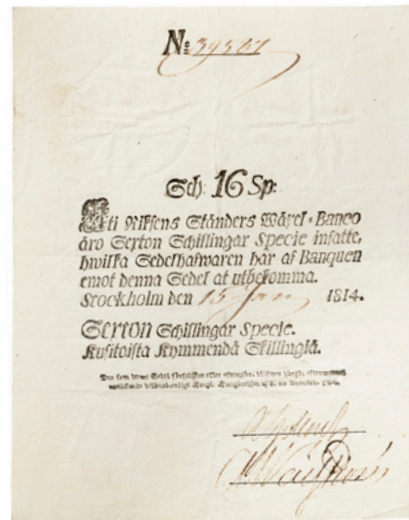 No: 39387
Sch: 16 Sp:
Uti Riksens Ständers Wäxel-Banco
äro Sexton Schillingar Specie insatte,
hwilka Sedelhafwaren här af Banquen
emot denna Sedel at utbekomma.
Stockholm den 15 Jan 1814.
Sexton Schillingar Specie.
Kusitoista Kymmendä Skillingiä.
Den som denna Sedel